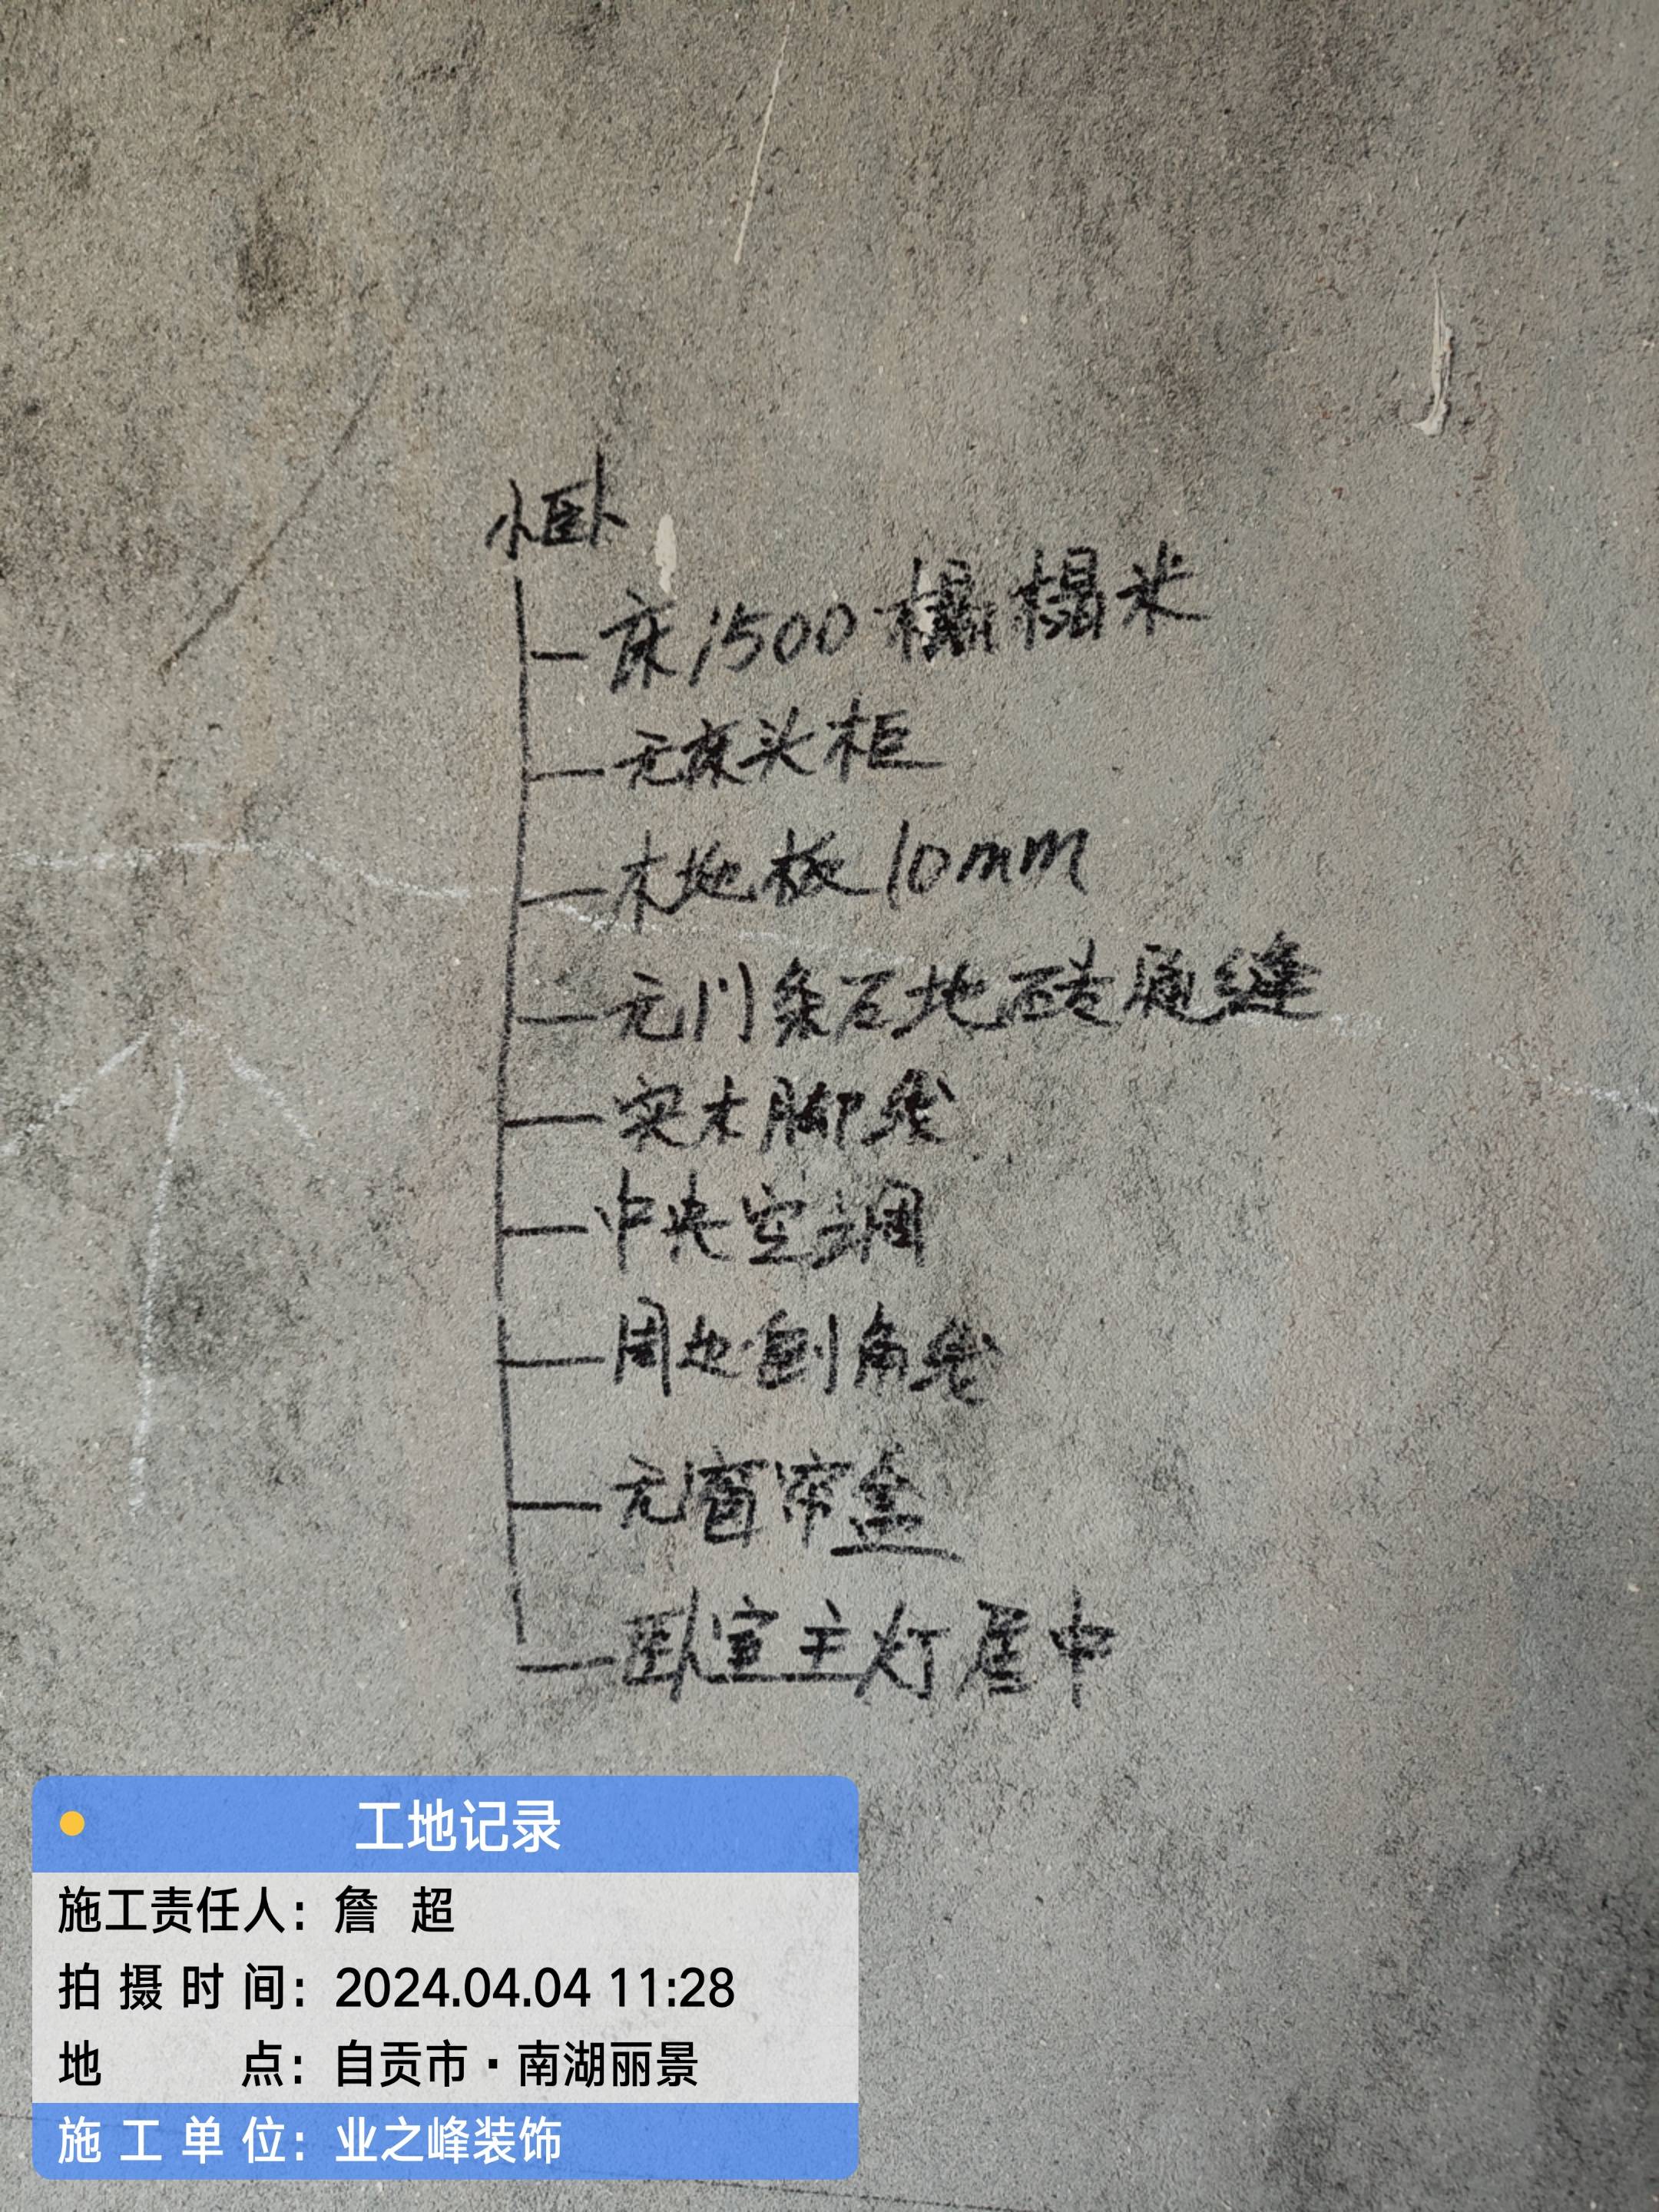 小卧
床1500榻榻米
无床头柜
木地板10mm
无门条石地砖通缝
实木脚线
中央空调
周边倒角线
无窗帘盒
卧室主灯居中
工地记录
施工责任人：詹 超
拍摄时间：2024.04.04 11:28
地 点：自贡市·南湖丽景
施工单位：业之峰装饰